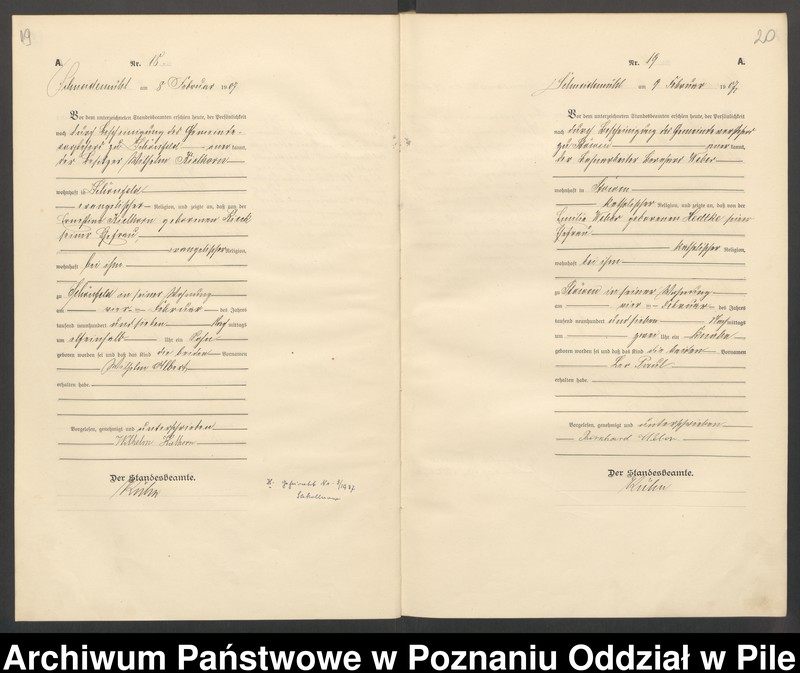 19
A.
Nr. 18
Schneidemühl am 8 Februar 1907.
Vor dem unterzeichneten Standesbeamten erschien heute, der Persönlichkeit
nach durch Bescheinigung des Gemeinde-
vorstehers zu Schönfeld kannt,
der Besitzer Wilhelm Kielhorn
wohnhaft in Schönfeld
evangelischer Religion, und zeigte an, daß von der
Kielhorn geborenen
seiner Ehefrau,
evangelischer Religion,
wohnhaft bei ihm
zu Schönfeld in seiner Wohnung
am vier Februar des Jahres
tausend neunhundert und sieben mittags
um Uhr ein
geboren worden sei und daß das Kind die beiden Vornamen
Wilhelm Albert
erhalten habe.
Vorgelesen, genehmigt und unterschrieben
Wilhelm
Der Standesbeamte.
20
Nr. 19
A.
Schneidemühl am 9 Februar 1907.
Vor dem unterzeichneten Standesbeamten erschien heute, der Persönlichkeit
nach durch Bescheinigung des Gemeindevorstehers
zu Stöwen kannt,
der Bernhard Weber
wohnhaft in Stöwen
katholischer Religion, und zeigte an, daß von der
Emilie Weber geborenen seiner
Ehefrau
katholischer Religion,
wohnhaft bei ihm
zu Stöwen in seiner Wohnung
am vier Februar des Jahres
tausend neunhundert und sieben Nachmittags
um zwei Uhr ein Knabe
geboren worden sei und daß das Kind die Vornamen
Leo Paul
erhalten habe.
Vorgelesen, genehmigt und unterschrieben
Bernhard Weber
Der Standesbeamte.
Archiwum Państwowe w Poznaniu Oddział w Pile